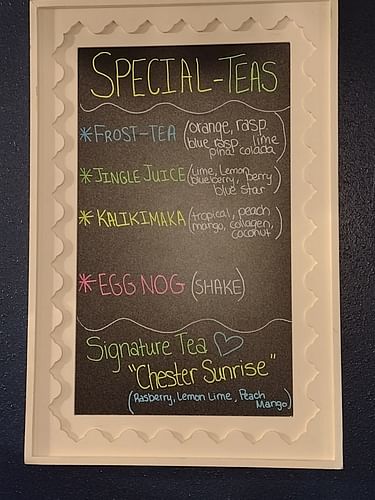 SPECIAL-TEAS
*FROST-TEA (orange, rasp
blue rasp, lime
pina colada)
*JINGLE JUICE (Lime, Lemon
blueberry, berry
blue star)
*KALIKIMAKA (tropical, peach
mango, collagen,
coconut)
*EGG NOG (SHAKE)
Signature Tea ♡
"Chester Sunrise"
(Rasberry, Lemon Lime, Peach
Mango)